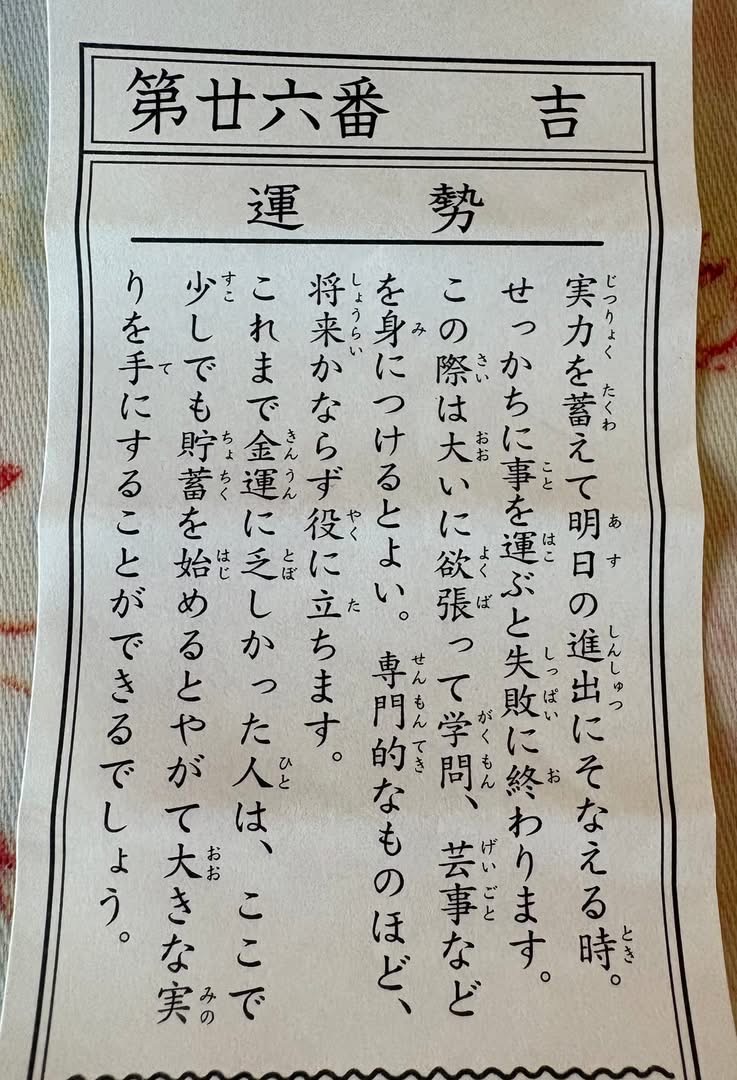 第廿六番 吉
運勢
実力を蓄えて明日の進出にそなえる時。
せっかちに事を運ぶと失敗に終わります。
この際は大いに欲張って学問、芸事など
を身につけるとよい。専門的なものほど、
将来かならず役に立ちます。
これまで金運に乏しかった人は、ここで
少しでも貯蓄を始めるとやがて大きな実
りを手にすることができるでしょう。